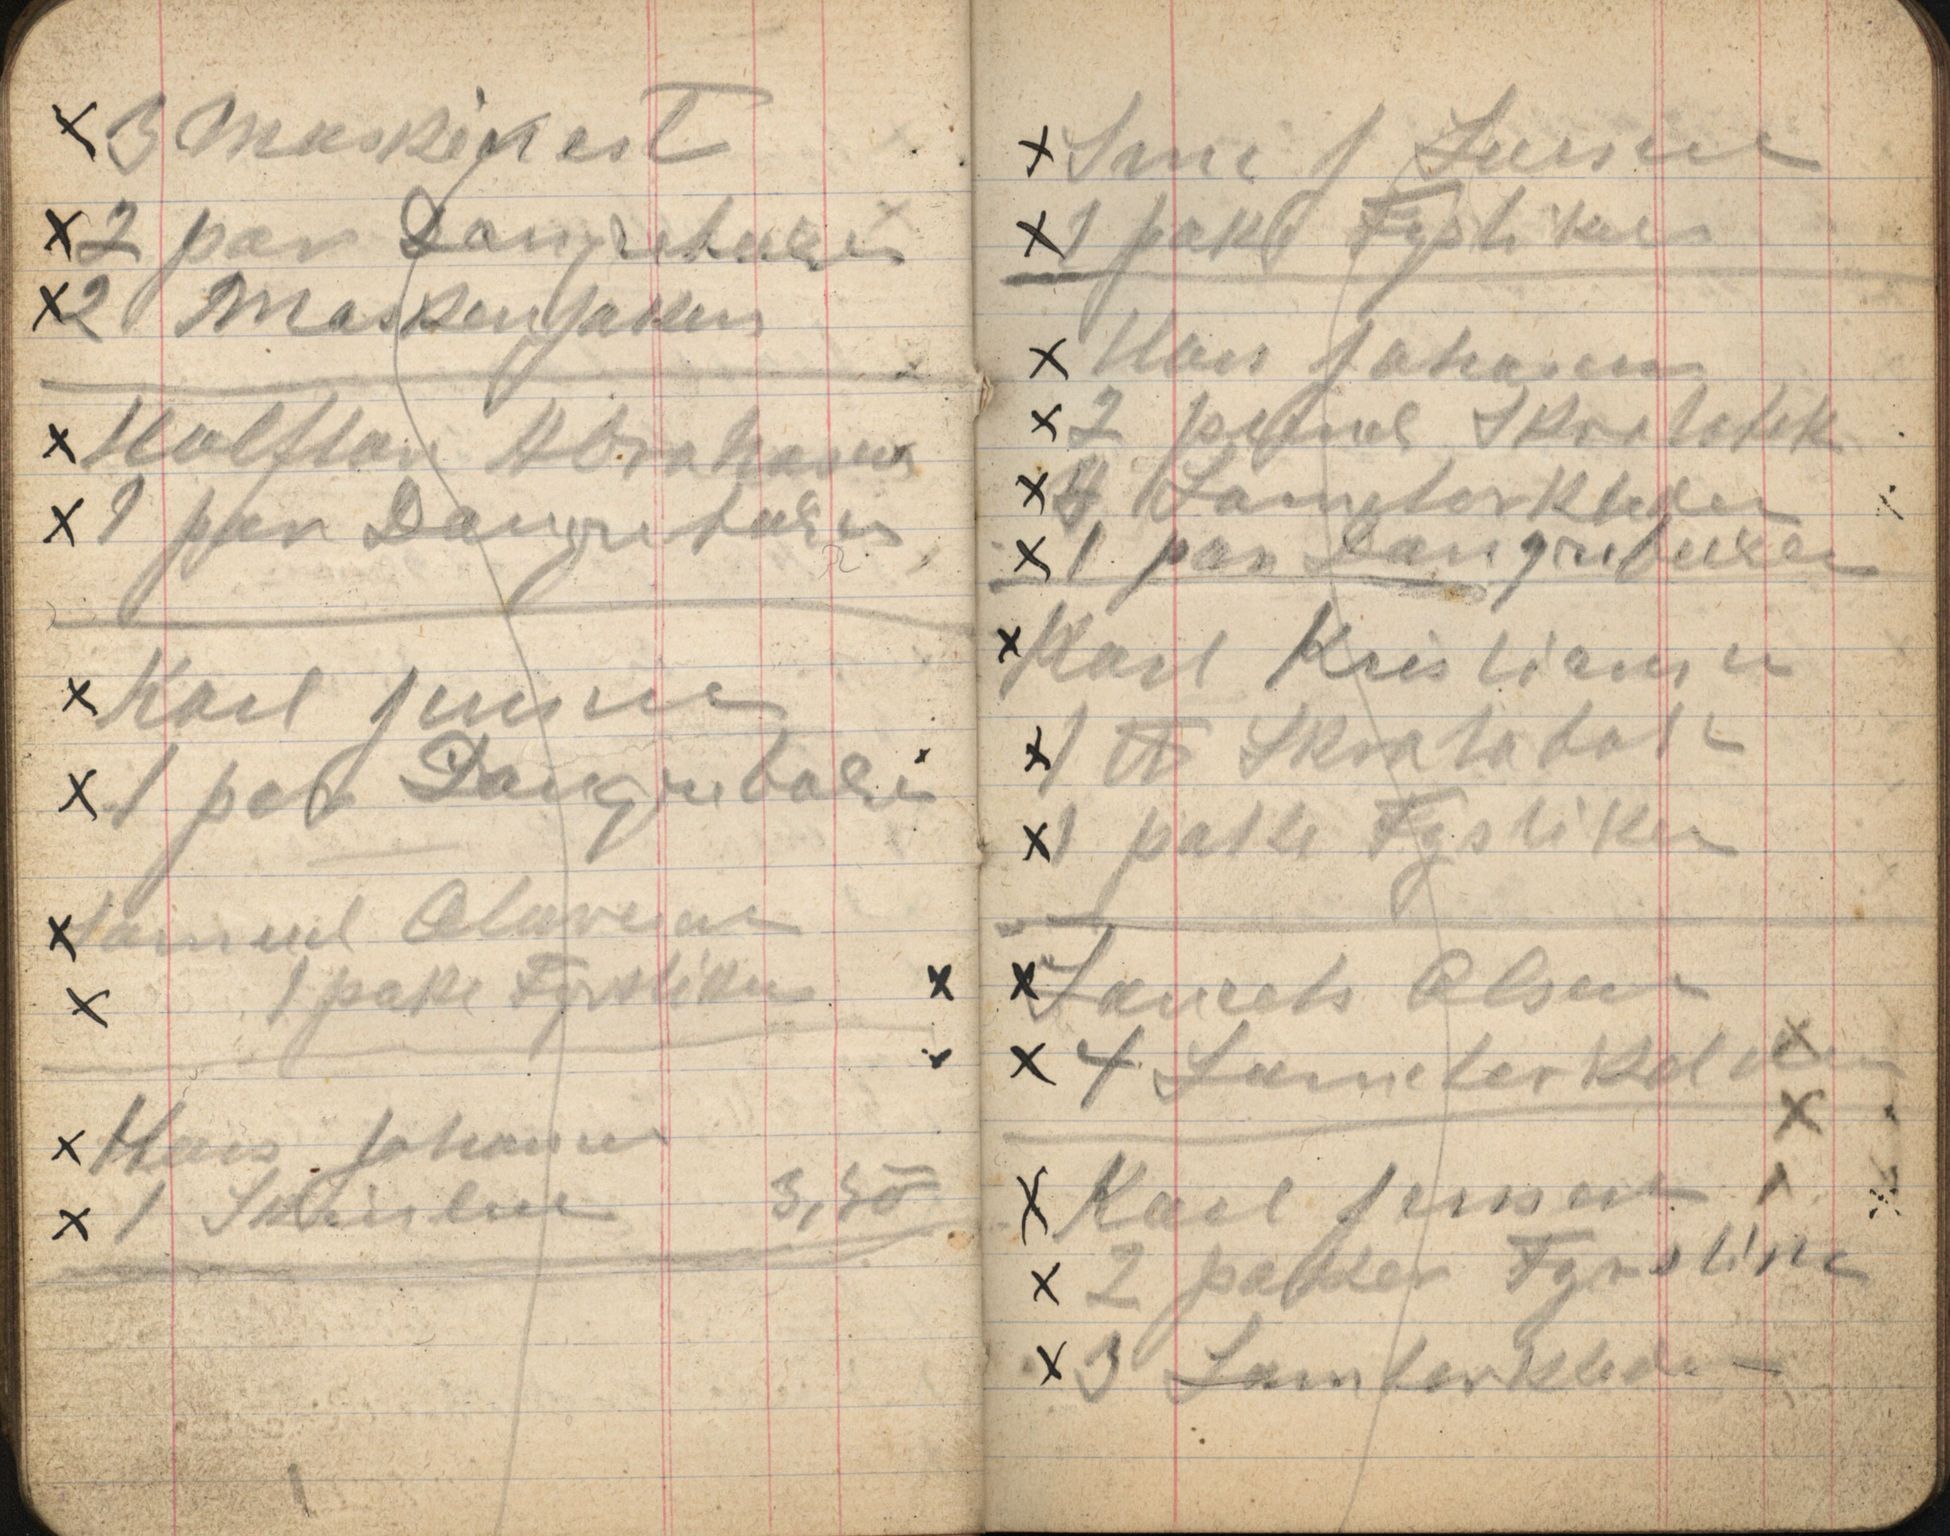 x 3 Maskinest
x 2 par Dangrebukser
x 2 Maskenjaken
x Halfdan Abrahamsen
x 1 par Dangrebukser
x Karl Jensen
x 1 par Dangrebukse
x Samuel Olavesen
x 1 pake Fyrstikker
x Hans Johansen
x 1 3,50
x J Larsen
x 1 pake Fystikker
x Hans Johansen
x 2 Skratobak
x 4 Lometorkleder
x 1 par Dangrebukser
x Karl Kristiansen
x 1 Skratobak
x 1 pakke Fystikker
x x Laurets Olsen
x 4 Lumeterkleder
x Karl Jensen
x 2 pakker Fyrstikk
x 3 Lomterkleder